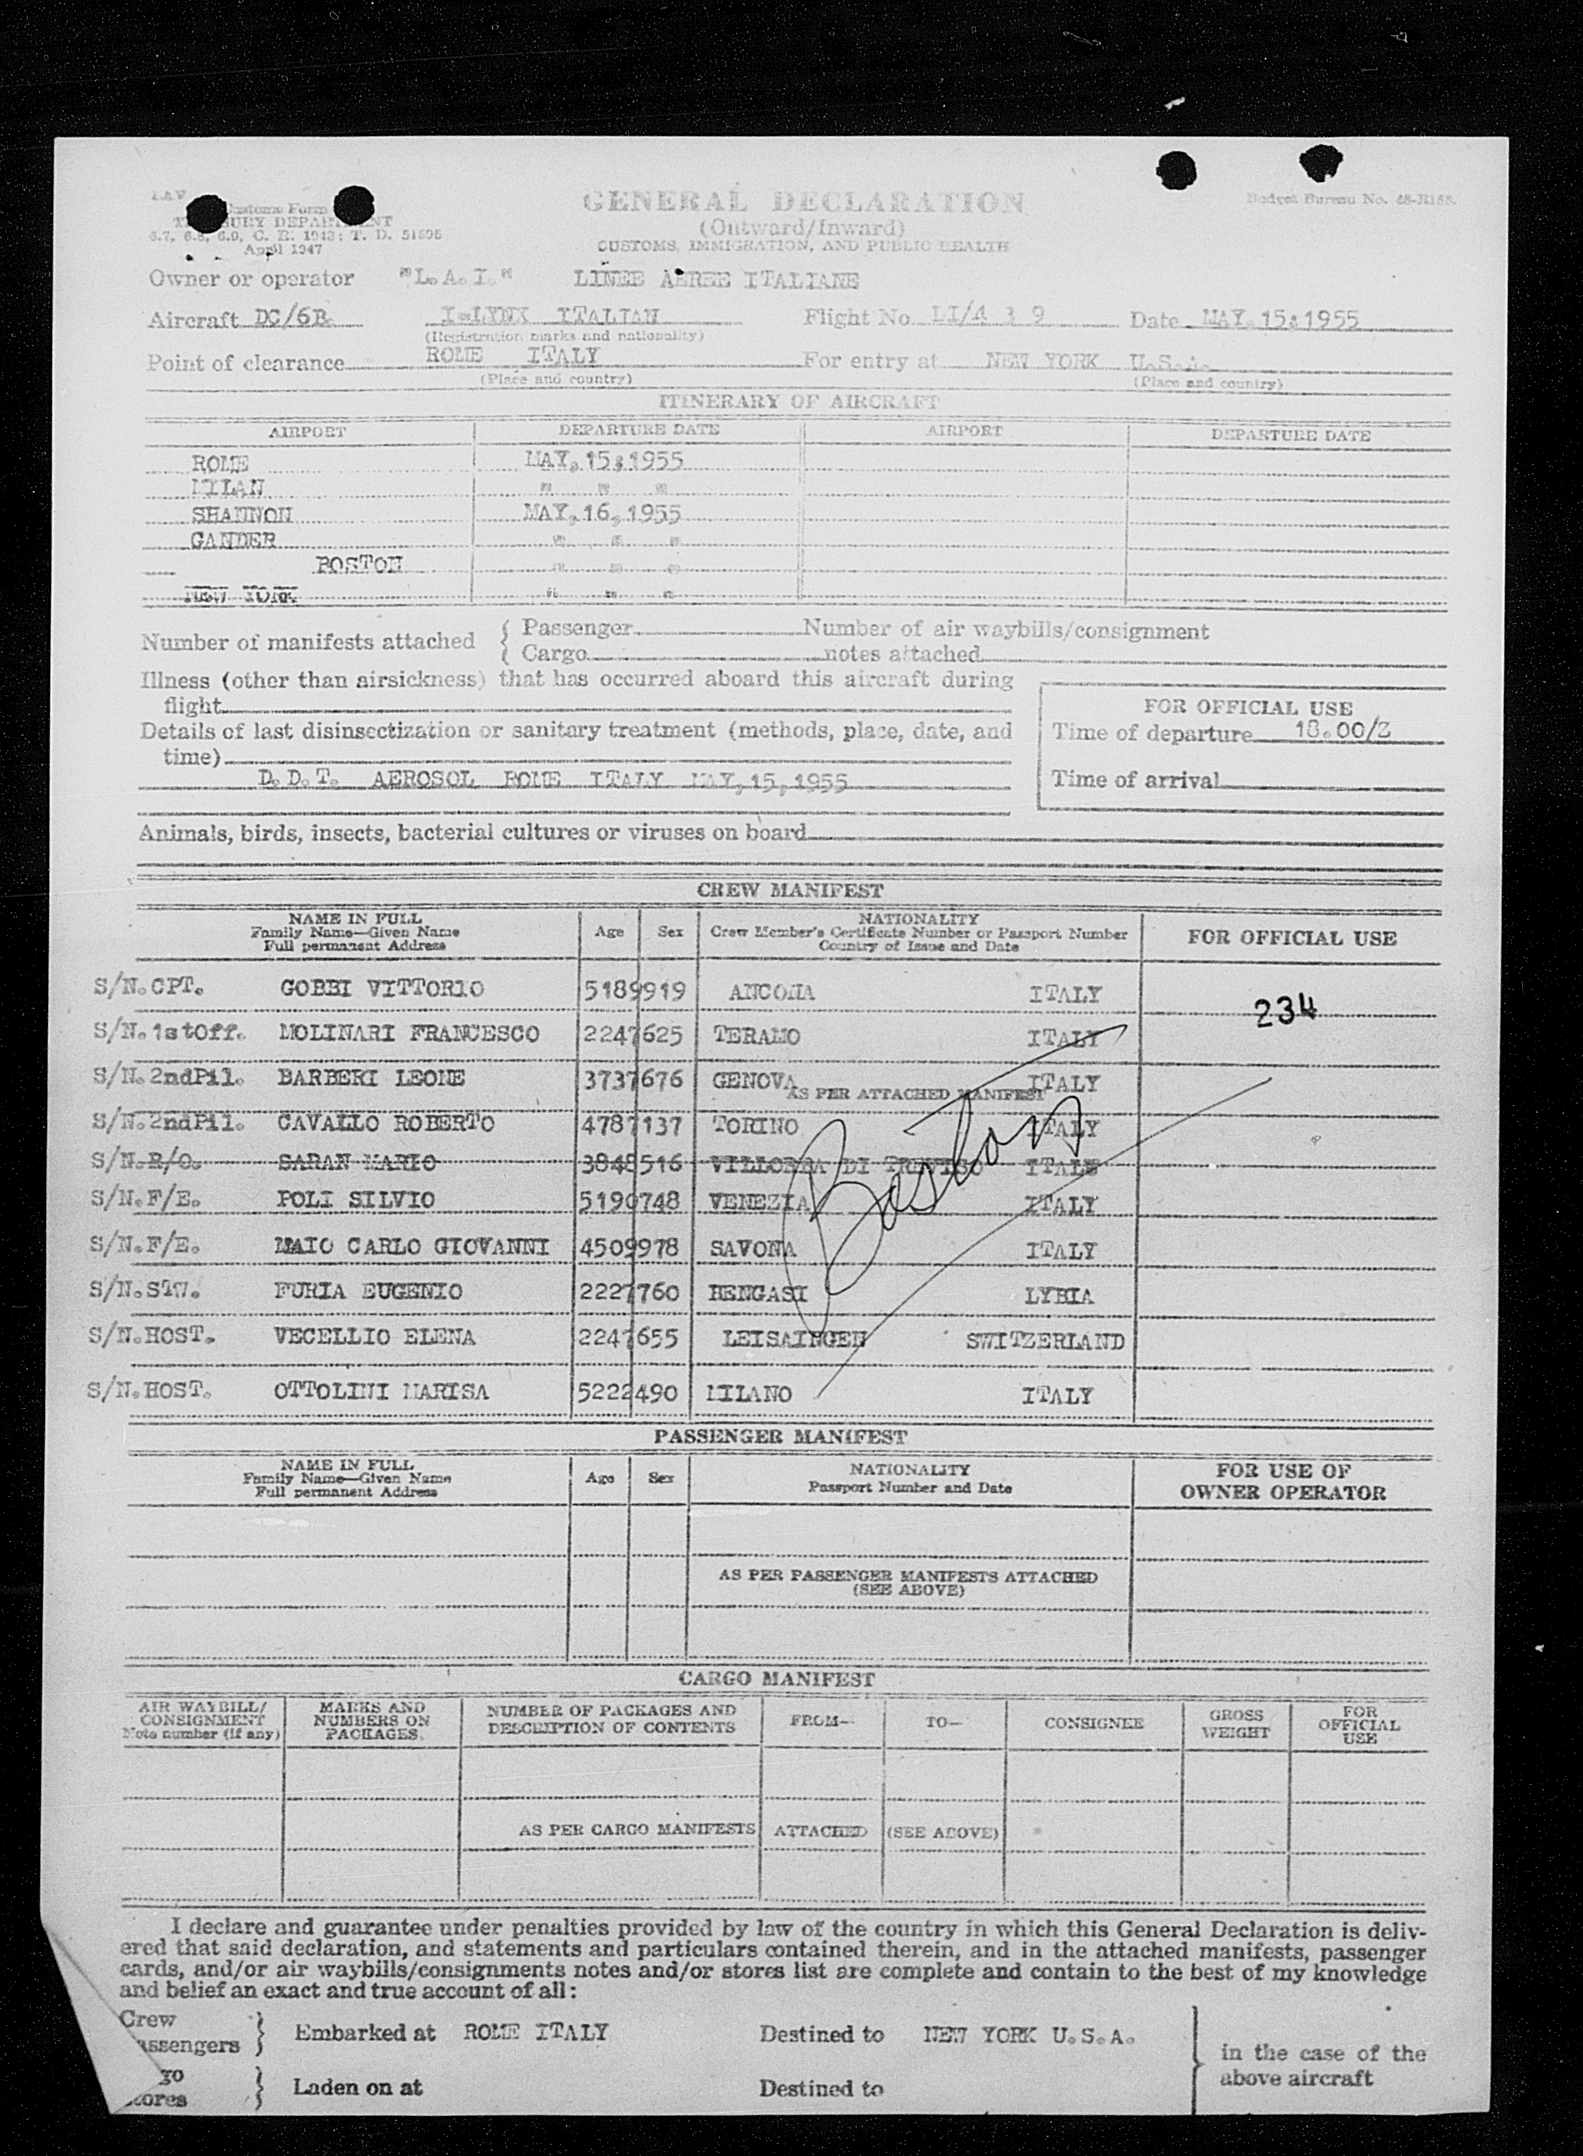 Customs Form
GENERAL DECLARATION
Budget Bureau No. 48-R155.
TREASURY DEPARTMENT
(Outward/Inward)
6.7, 6.8, 6.9, C. R. 1943; T. D. 51595
CUSTOMS, IMMIGRATION, AND PUBLIC HEALTH
April 1947
Owner or operator "L.A.I." LINEE AEREE ITALIANE
Aircraft DC/6B. I-LYNX ITALIAN Flight No LI/4 3 9 Date MAY.15:1955
(Registration marks and nationality)
Point of clearance ROME ITALY For entry at NEW YORK U.S.A.
(Place and country) (Place and country)
ITINERARY OF AIRCRAFT
AIRPORT DEPARTURE DATE AIRPORT DEPARTURE DATE
ROME MAY.15:1955
MILAN " " "
SHANNON MAY.16,1955
GANDER " " "
BOSTON " " "
NEW YORK " " "
Number of manifests attached { Passenger Number of air waybills/consignment
{ Cargo notes attached
Illness (other than airsickness) that has occurred aboard this aircraft during
flight
FOR OFFICIAL USE
Details of last disinsectization or sanitary treatment (methods, place, date, and
Time of departure 18.00/Z
time)
D.D.T. AEROSOL ROME ITALY MAY,15,1955
Time of arrival
Animals, birds, insects, bacterial cultures or viruses on board
CREW MANIFEST
NAME IN FULL
Family Name—Given Name
Full permanent Address
Age Sex
NATIONALITY
Crew Member's Certificate Number or Passport Number
Country of Issue and Date
FOR OFFICIAL USE
S/N.CPT. GOBBI VITTORIO 5189919 ANCONA ITALY
234
S/N.1stOff. MOLINARI FRANCESCO 2247625 TERAMO ITALY
S/N.2ndPil. BARBERI LEONE 3737676 GENOVA ITALY
AS PER ATTACHED MANIFEST
S/N.2ndPil. CAVALLO ROBERTO 4787137 TORINO ITALY
S/N.R/O. SARAN MARIO 3848516 VILLORBA DI TREVISO ITALY
Boston
S/N.F/E. POLI SILVIO 5190748 VENEZIA ITALY
S/N.F/E. MAIO CARLO GIOVANNI 4509978 SAVONA ITALY
S/N.STW. FURIA EUGENIO 2227760 BENGASI LYBIA
S/N.HOST. VECELLIO ELENA 2247655 LEISAINGEN SWITZERLAND
S/N.HOST. OTTOLINI MARISA 5222490 MILANO ITALY
PASSENGER MANIFEST
NAME IN FULL
Family Name—Given Name
Full permanent Address
Age Sex
NATIONALITY
Passport Number and Date
FOR USE OF
OWNER OPERATOR
AS PER PASSENGER MANIFESTS ATTACHED
(SEE ABOVE)
CARGO MANIFEST
AIR WAYBILL/
CONSIGNMENT
Note number (if any)
MARKS AND
NUMBERS ON
PACKAGES
NUMBER OF PACKAGES AND
DESCRIPTION OF CONTENTS
FROM—
TO—
CONSIGNEE
GROSS
WEIGHT
FOR
OFFICIAL
USE
AS PER CARGO MANIFESTS ATTACHED (SEE ABOVE)
I declare and guarantee under penalties provided by law of the country in which this General Declaration is deliv-
ered that said declaration, and statements and particulars contained therein, and in the attached manifests, passenger
cards, and/or air waybills/consignments notes and/or stores list are complete and contain to the best of my knowledge
and belief an exact and true account of all:
Crew
assengers } Embarked at ROME ITALY Destined to NEW YORK U.S.A.
in the case of the
above aircraft
go
tores } Laden on at Destined to